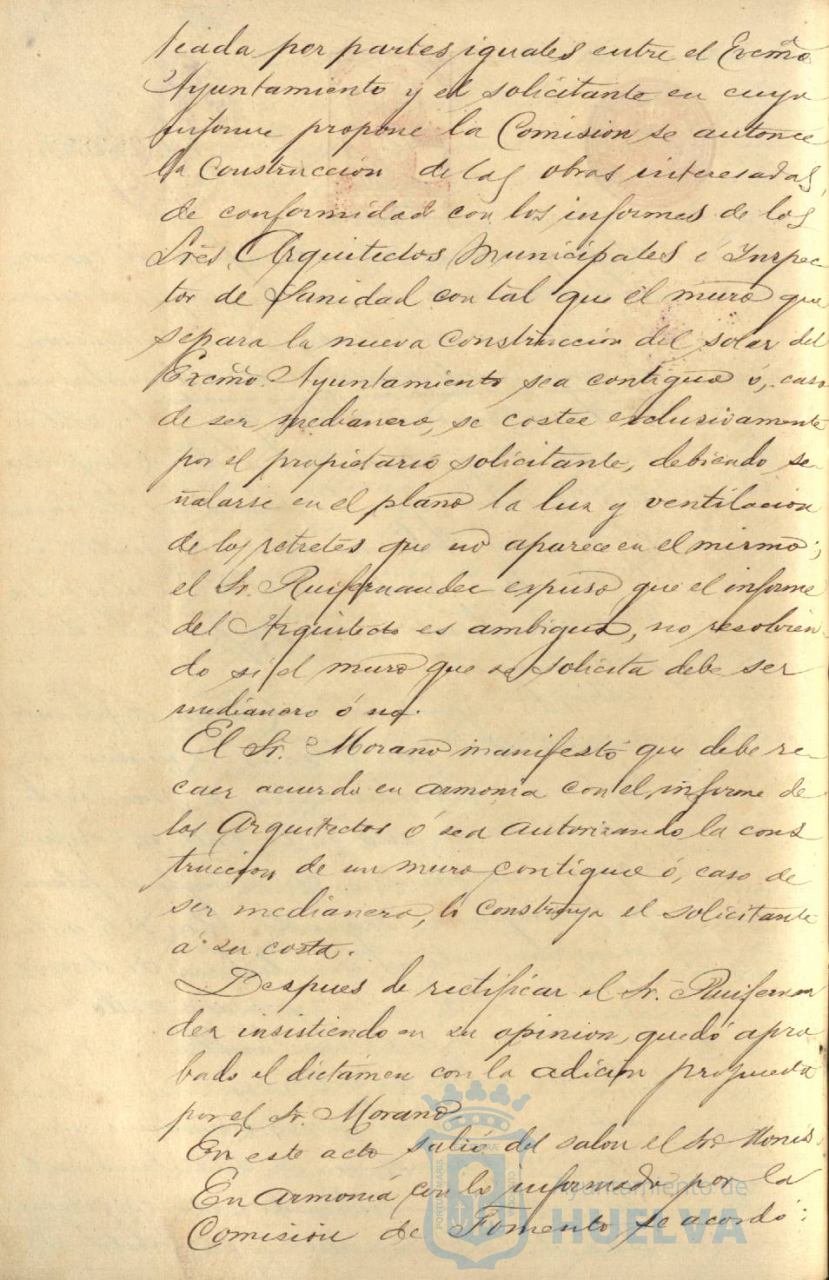 teada por partes iguales entre el Excmo.
Ayuntamiento y el solicitante en cuyo
informe propone la Comision se autorice
la Construccion de las obras interesadas,
de conformidad con los informes de los
Sres. Arquitectos Municipales é Inspec
tor de Sanidad con tal que el muro que
separa la nueva Construccion del solar del
Excmo. Ayuntamiento sea contiguo ó, caso
de ser medianero, se costee exclusivamente
por el propietario solicitante, debiendo se
ñalarse en el plano la luz y ventilacion
de los retretes que no aparece en el mismo;
el Sr. Ruifernandez expuso que el informe
del Arquitecto es ambiguo, no resolvien
do si el muro que se solicita debe ser
medianero ó no.
El Sr. Morano manifestó que debe re
caer acuerdo en armonia con el informe de
los Arquitectos ó sea autorizando la cons
truccion de un muro contiguo ó, caso de
ser medianero, lo construya el solicitante
á su costa.
Despues de rectificar el Sr. Ruifernan
dez insistiendo en su opinion, quedó apro
bado el dictámen con la adicion propuesta
por el Sr. Morano.
En este acto salió del salon el Sr. Monis.
En armonia con lo informado por la
Comision de Fomento se acordó:
Ayuntamiento de
HUELVA